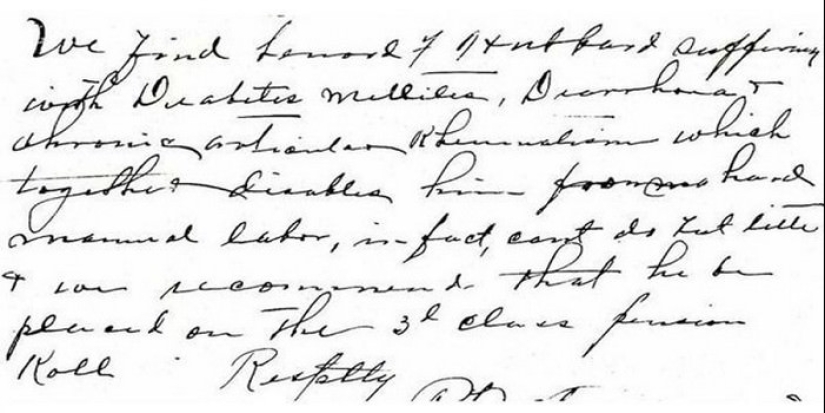 We find Leonard F Hubbard suffering
with Diabetes Mellites, Diarrhoea &
chronic articular Rheumatism which
together disables him from hard
manual labor, in fact, cant do but little
& we recommend that he be
placed on the 3d class pension
Roll Resptly